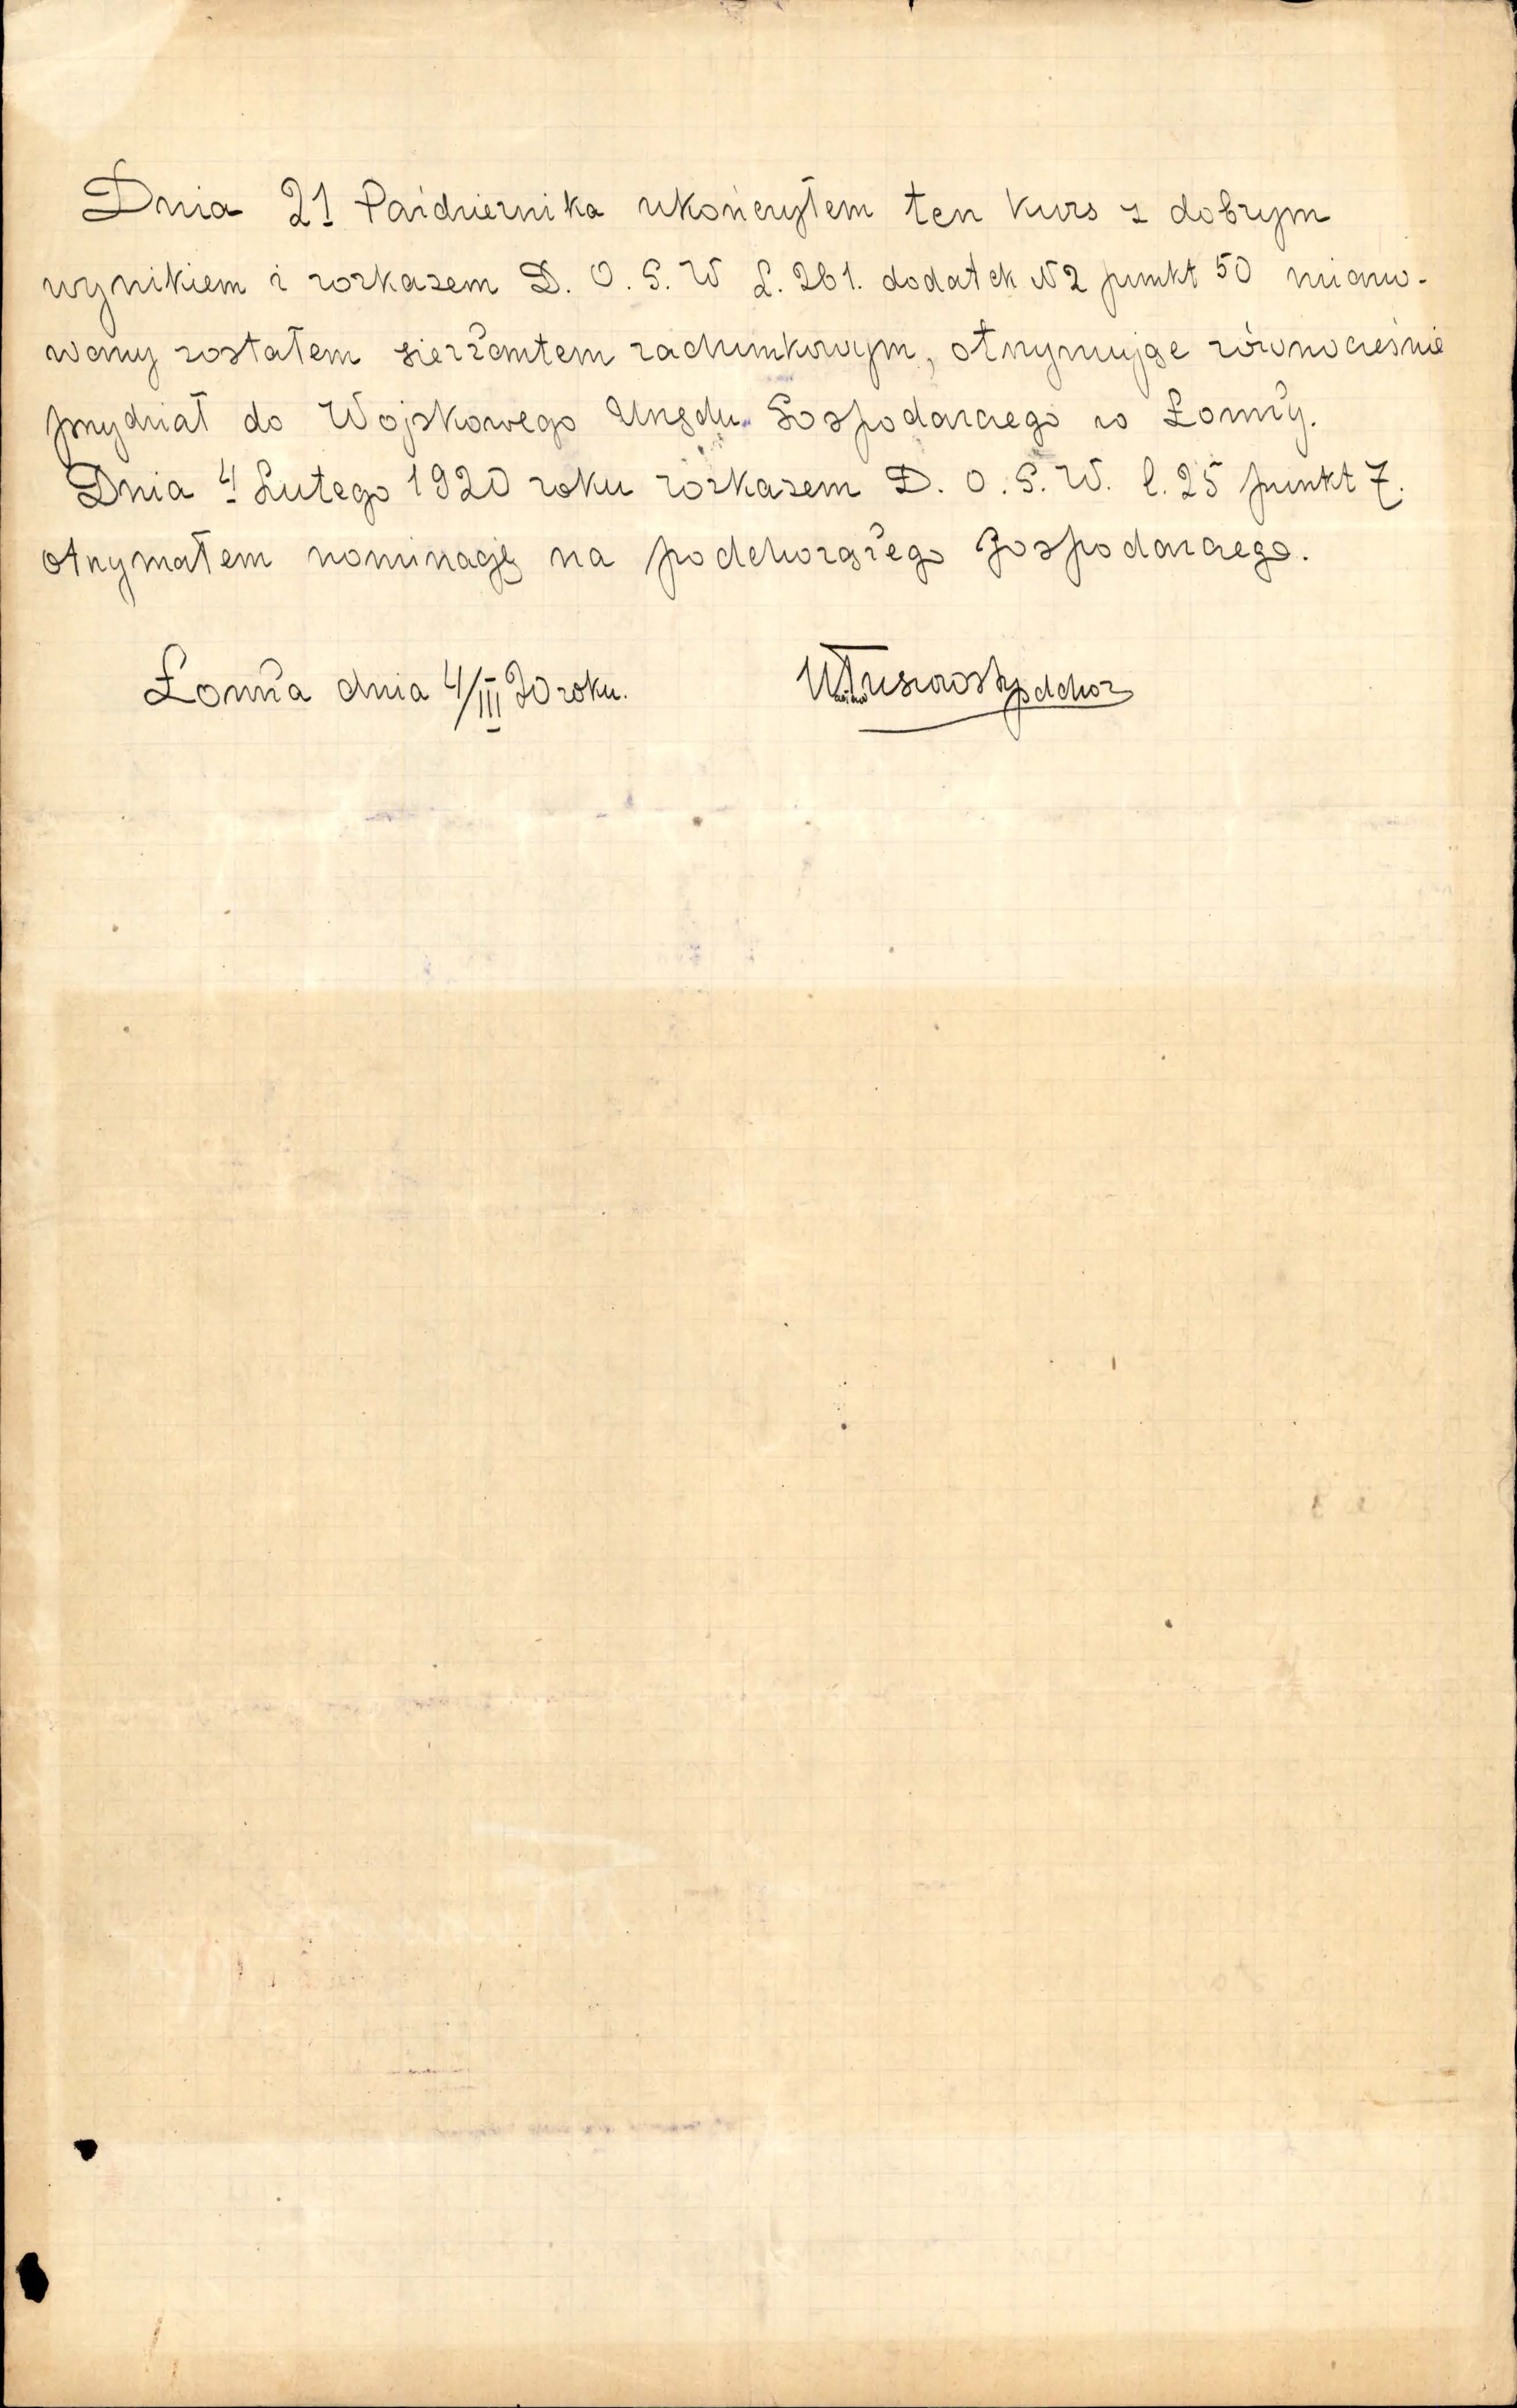 Dnia 21 Października ukończyłem ten kurs z dobrym
wynikiem i rozkazem D. O. G. W L. 261. dodatek N2 punkt 50 miano-
wany zostałem sierżantem rachunkowym, otrzymując równocześnie
przydział do Wojskowego Urzędu Gospodarczego w Łomży.
Dnia 4 Lutego 1920 roku rozkazem D. O. G. W. l. 25 punkt 7.
otrzymałem nominację na podchorążego gospodarczego.
Łomża dnia 4/III 20 roku.
pdchor